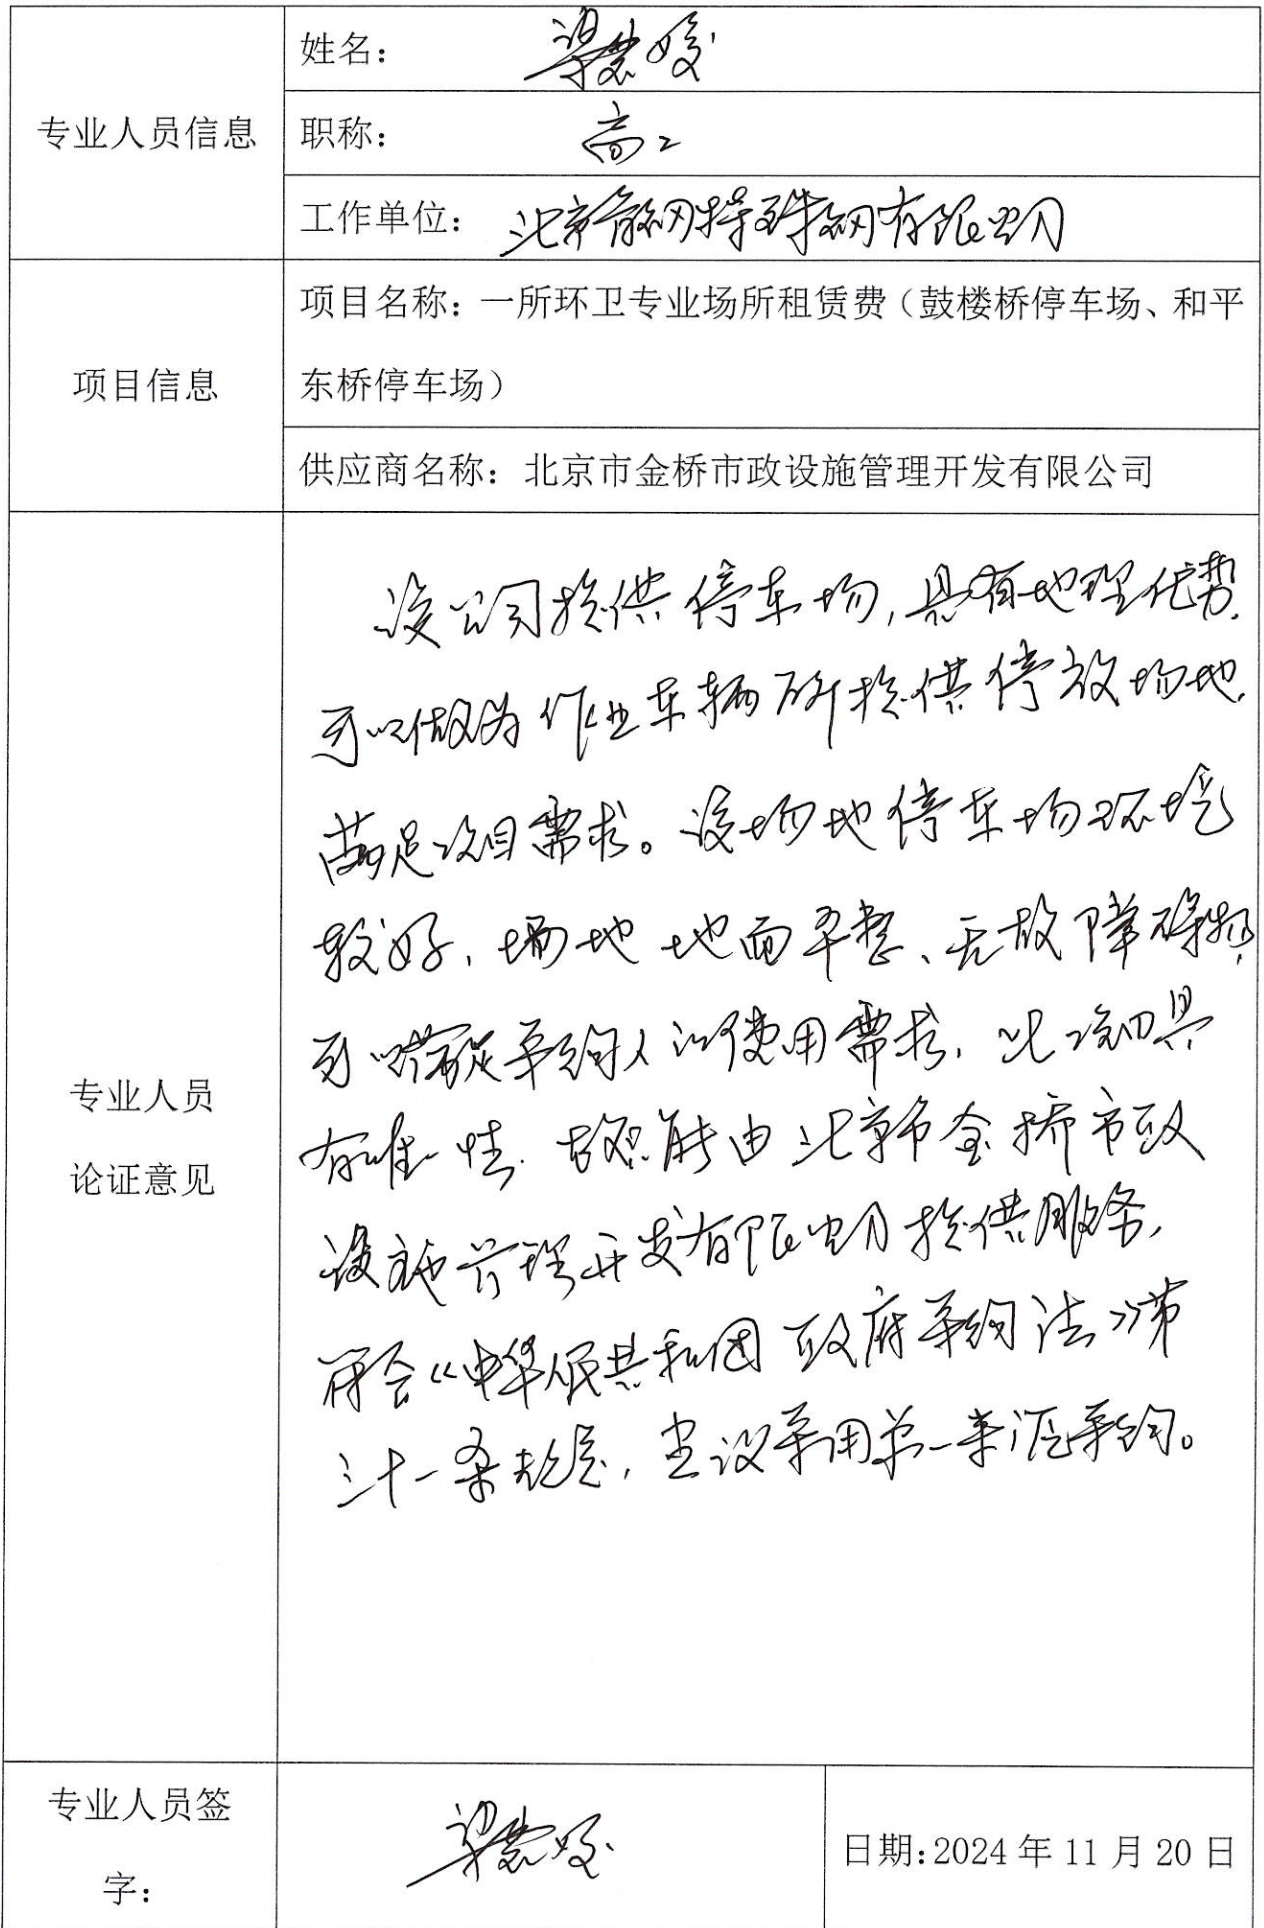 专业人员信息
姓名： 梁慧媛
职称： 高工
工作单位： 北京首钢特殊钢有限公司
项目信息
项目名称：一所环卫专业场所租赁费（鼓楼桥停车场、和平
东桥停车场）
供应商名称：北京市金桥市政设施管理开发有限公司
专业人员
论证意见
该公司提供停车场，具有地理优势，
可以做为作业车辆所提供停放场地，
满足项目需求。该场地停车场环境
较好，场地地面平整、无故障碍物，
可以满足采购人的使用需求，此项目具
有唯一性，故只能由北京市金桥市政
设施管理开发有限公司提供服务，
符合《中华人民共和国政府采购法》第
三十一条规定，建议采用单一来源采购。
专业人员签
字：
梁慧媛
日期:2024年11月20日